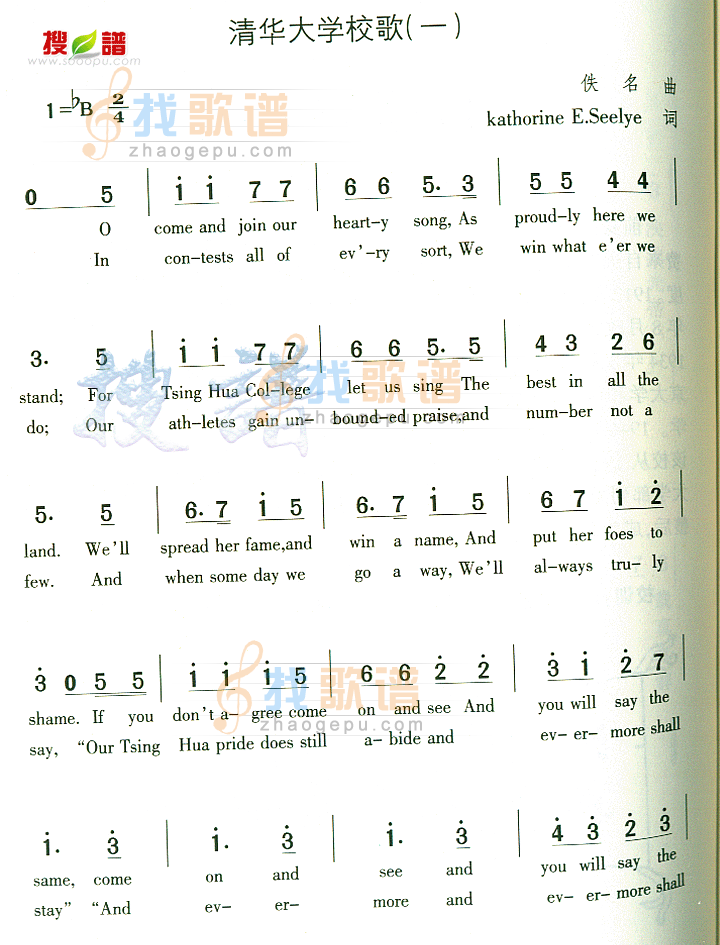 清华大学校歌(一)
搜谱
www.sooopu.com
佚名 曲
1=♭B 2/4
kathorine E.Seelye 词
找歌谱
zhaogepu.com
0 5 | i i 7 7 | 6 6 5. 3 | 5 5 4 4 |
O come and join our heart-y song, As proud-ly here we
In con-tests all of ev'-ry sort, We win what e'er we
3. 5 | i i 7 7 | 6 6 5. 5 | 4 3 2 6 |
stand; For Tsing Hua Col-lege let us sing The best in all the
do; Our ath-letes gain un- bound-ed praise,and num-ber not a
搜谱
找歌谱
zhaogepu.com
5. 5 | 6. 7 i 5 | 6. 7 i 5 | 6 7 i 2̇ |
land. We'll spread her fame,and win a name, And put her foes to
few. And when some day we go a way, We'll al-ways tru-ly
3̇ 0 5 5 | i i i. 5 | 6 6 2̇ 2̇ | 3̇ i 2̇ 7 |
shame. If you don't a- gree come on and see And you will say the
say, “Our Tsing Hua pride does still a-bide and ev- er- more shall
找歌谱
zhaogepu.com
i. 3̇ | i. 3̇ | i. 3̇ | 4̇ 3̇ 2̇ 3̇ |
same, come on and see and you will say the
stay” “And ev- er- more and ev- er- more shall